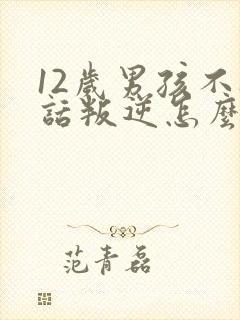 12歲男孩不
話叛逆怎麼
范青磊